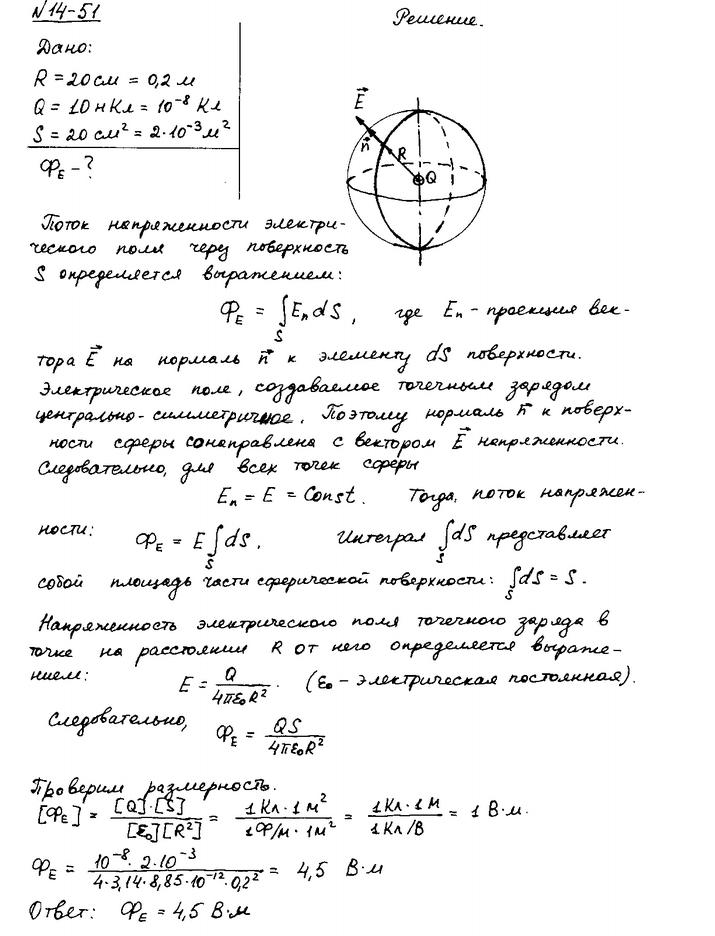 №14-51
Решение.
Дано:
R = 20 см = 0,2 м
Q = 10 нКл = 10⁻⁸ Кл
S = 20 см² = 2·10⁻³ м²
Φ_E - ?
E⃗
n⃗
R
Q
Поток напряженности электри-
ческого поля через поверхность
S определяется выражением:
Φ_E = ∫_S E_n dS, где E_n - проекция век-
тора E⃗ на нормаль n⃗ к элементу dS поверхности.
Электрическое поле, создаваемое точечным зарядом
центрально-симметричное. Поэтому нормаль n⃗ к поверх-
ности сферы сонаправлена с вектором E⃗ напряженности.
Следовательно, для всех точек сферы
E_n = E = Const. Тогда, поток напряжен-
ности: Φ_E = E ∫_S dS. Интеграл ∫_S dS представляет
собой площадь части сферической поверхности: ∫_S dS = S.
Напряженность электрического поля точечного заряда в
точке на расстоянии R от него определяется выраже-
нием: E = Q / 4πε₀R². (ε₀ - электрическая постоянная).
Следовательно, Φ_E = QS / 4πε₀R²
Проверим размерность.
[Φ_E] = [Q]·[S] / [ε₀][R²] = 1 Кл · 1 м² / 1 Ф/м · 1 м² = 1 Кл · 1 м / 1 Кл/В = 1 В·м.
Φ_E = 10⁻⁸ · 2·10⁻³ / 4·3,14·8,85·10⁻¹²·0,2² = 4,5 В·м
Ответ: Φ_E = 4,5 В·м